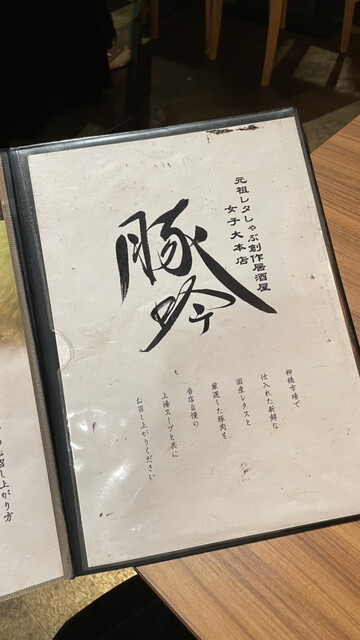 元祖レタしゃぶ創作居酒屋
女子大本店
豚吟
柳橋市場で
仕入れた新鮮な
国産レタスと
厳選した豚肉を
当店自慢の
上湯スープと共に
お召し上がりください
のお召し上がり方